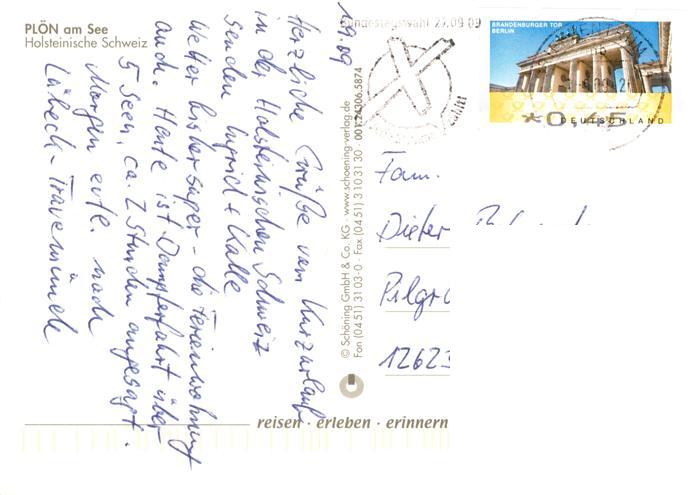 PLÖN am See
Holsteinische Schweiz
1.9.09
Herzliche Grüße vom Kurzurlaub
in der Holsteinischen Schweiz
senden Ingrid + Kalle
Wetter bisher super - die Ferienwohnung
auch. Heute ist Dampferfahrt über
5 Seen, ca. 2 Stunden angesagt.
Morgen evtl. nach
Lübeck-Travemünde
© Schöning GmbH & Co. KG · www.schoening-verlag.de
Fon (04 51) 31 03-0 · Fax (04 51) 3 10 31 30 · 001.24306.5874
Bundestagswahl 27.09.09
BRANDENBURGER TOR
BERLIN
*0,45
DEUTSCHLAND
Fam.
Dieter
Pilgr
12623
reisen · erleben · erinnern